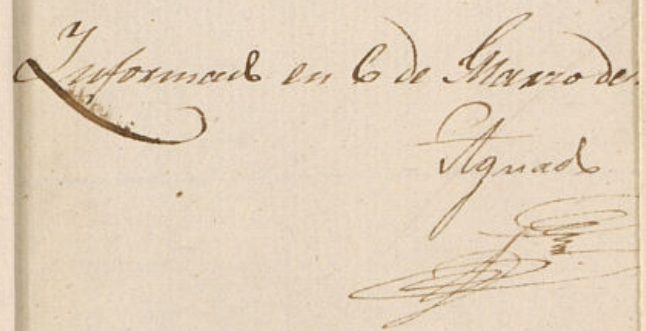 Informado en 6 de Marzo de
Aguado